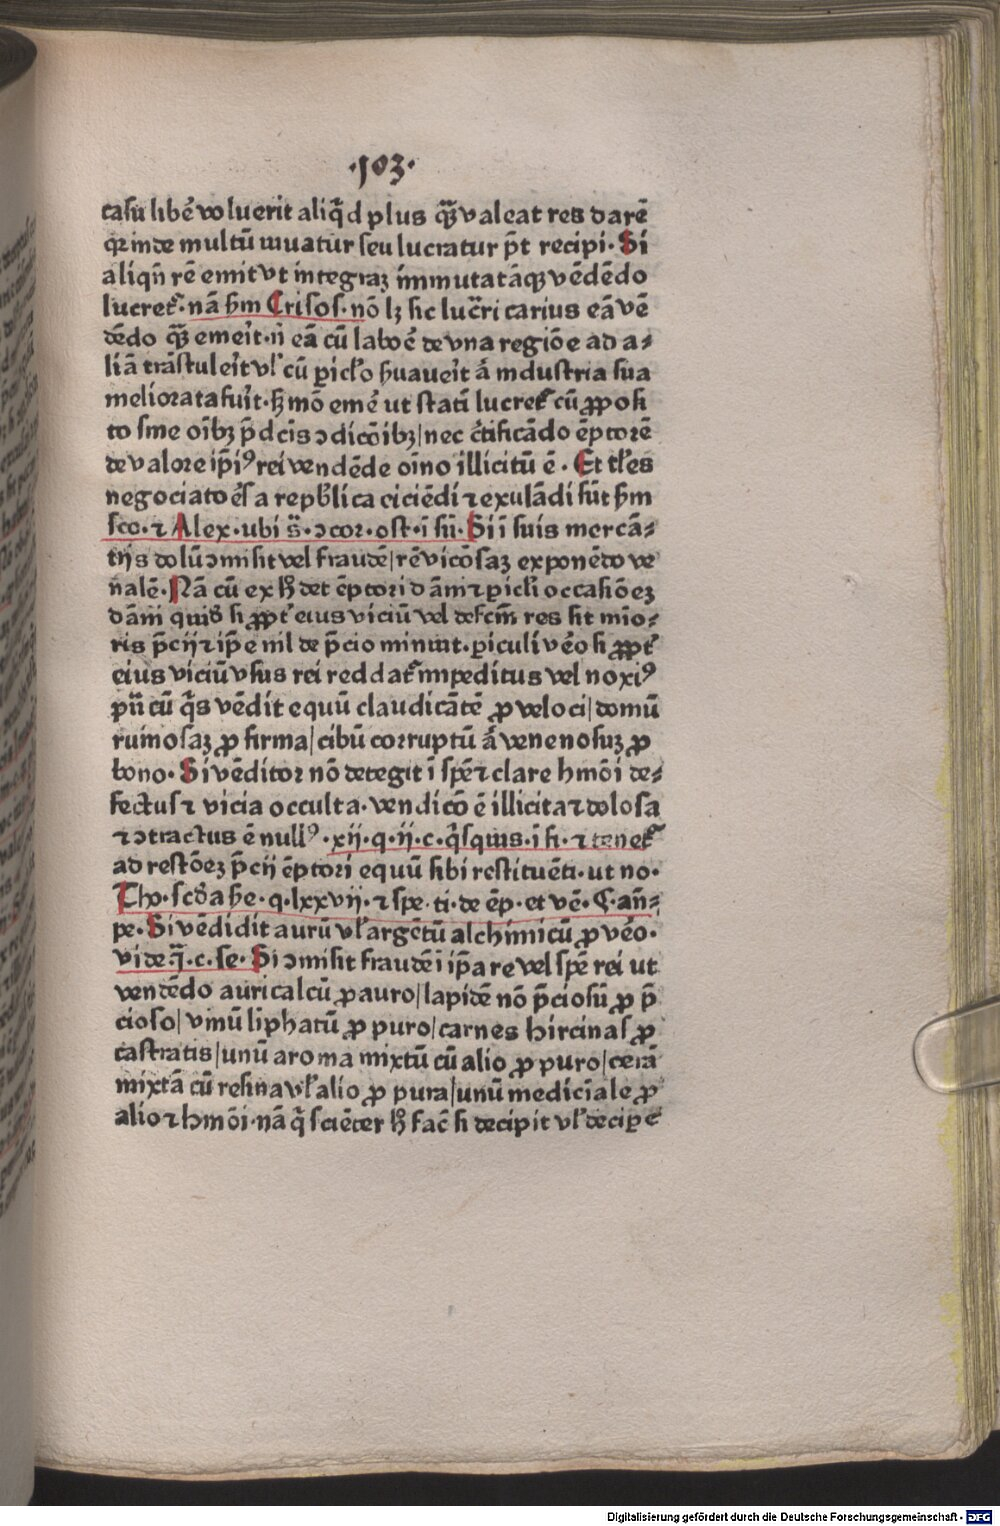 ·103·
casu libē voluerit aliq̄d plus q̄ȝ valeat res darē
qꝛ inde multū iuuatur seu lucratur pt̄ recipi· Si
aliqn̄ rē emit vt integraꝫ immutatāqꝫ vēdēdo
lucret᷑· nā ẜm Crisos· nō lꝫ sic luc̄ri carius eā vē
dēdo q̄ꝫ emerit· n̄ eā cū laboē de vna regiōe ad a⸗
liā trāstulerit vl̓ cū ꝑicl̓o ẜuauerit aͧ industria sua
meliorata fuit· hͦ mō emē ut statī lucret᷑ cū ꝓposi
to sine oībꝫ p̄dc̄is ↄdicōibꝫ / nec c̄tificādo ēptorē
de valore ip̄iꝰ rei vendēde oīno illicitū ē· Et tl̓es
negociatoēs a repb̓lica eiciēdi ⁊ exulādi sūt ẜm
sco· ⁊ Alex· ubi s̄· ↄcor· ost· ī sū· Si ī suis mercā⸗
tijs dolū ↄmisit vel fraudē / rē vicōsaꝫ exponēdo ve
nalē· Nā cū ex hͦ det ēptori dāni ⁊ ꝑicl̓i occasiōeꝫ
dāni quidē si ꝓpt᷑ eius viciū vel defcm̄ res sit mio⸗
ris p̄cij ⁊ ip̄e nil de p̄cio minuit· ꝑiculi vēo si ꝓpt᷑
eius viciū vsus rei reddat᷑ impeditus vel noxiꝰ
pn̄ cū q̄s vēdit equū claudicātē ꝓ veloci / domū
ruinosaꝫ ꝓ firma / cibū corruptū aͧ venenosuꝫ ꝓ
bono· Si vēditor nō detegit ī spē⁊ clare hmōi de⸗
fectus ⁊ vicia occulta· vendicō ē illicita ⁊ dolosa
⁊ ↄtractus ē nullꝰ· xij· q· ij· c· q̄squis· ī fi· ⁊ tenet᷑
ad restōeꝫ p̄cij ēptori equū sibi restituēti· ut no·
Tho· scd̄a ſe· q· lxxvij· ⁊ spe· ti· de ēp· et vē· C· an̄⸗
pe· Si vēdidit aurū vl̓ argētū alchimicū ꝓ vēo·
vide q̄· c· se· Si ↄmisit fraudē ī ip̄a re vel spē rei ut
vendēdo auricalcū ꝓ auro / lapidē nō p̄ciosū ꝓ p̄
cioso / vinū liphatū ꝓ puro / carnes hircinas ꝓ
castratis / unū aroma mixtū cū alio ꝓ puro / cerā
mixtā cū resina vl̓ alio ꝓ pura / unū medicīale ꝓ
alio ⁊ hmōi· nā q̄ sciēter hͦ fac̄ si decipit vl̓ decipe᷑
Digitalisierung gefördert durch die Deutsche Forschungsgemeinschaft - DFG